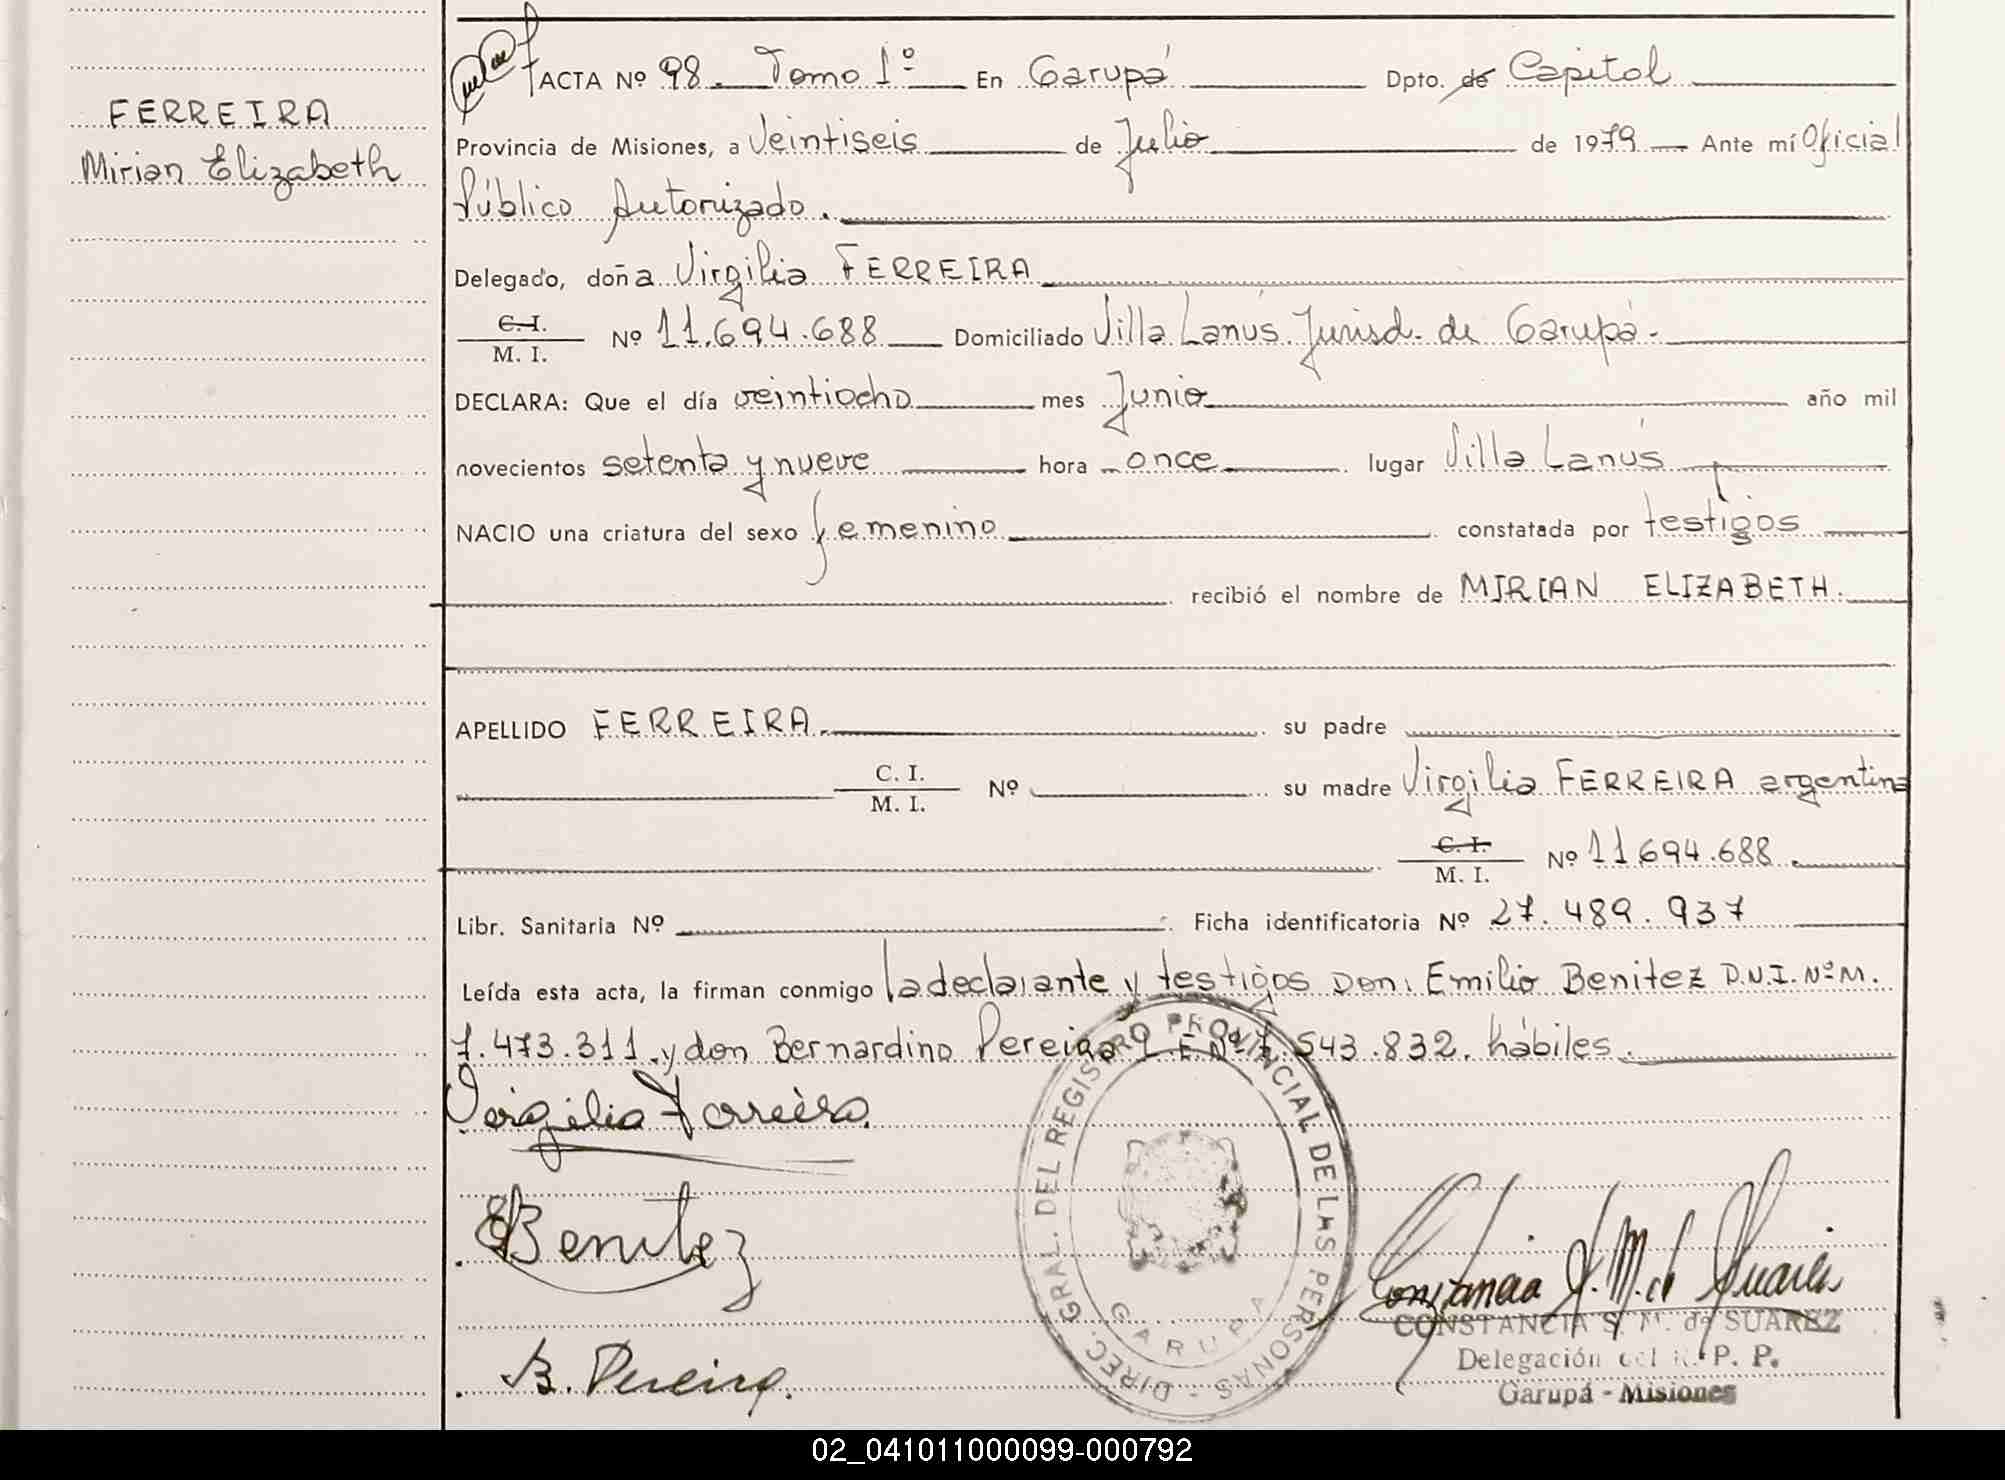 FERREIRA
Mirian Elizabeth
ACTA Nº 98. Tomo 1º En Garupá Dpto. de Capital
Provincia de Misiones, a Veintiseis de Julio de 1979 Ante mí Oficial
Público Autorizado.
Delegado, doña Virgilia FERREIRA
C. I.
M. I.
Nº 11.694.688 Domiciliado Villa Lanús Jurisd. de Garupá.
DECLARA: Que el día veintiocho mes Junio año mil
novecientos setenta y nueve hora once lugar Villa Lanús
NACIO una criatura del sexo femenino constatada por testigos
recibió el nombre de MIRIAN ELIZABETH.
APELLIDO FERREIRA. su padre
C. I.
M. I.
Nº su madre Virgilia FERREIRA argentina
C. I.
M. I.
Nº 11694.688.
Libr. Sanitaria Nº Ficha identificatoria Nº 27.489.937
Leída esta acta, la firman conmigo la declarante y testigos Don: Emilio Benitez D.N.I. Nº M.
7.473.311. y don Bernardino Pereira L.E. Nº 7.543.832. hábiles.
Virgilia Ferreira.
EBenitez
B. Pereira.
DIREC. GRAL. DEL REGISTRO PROVINCIAL DE LAS PERSONAS -
GARUPA
Constancia S. M. de Suarez
CONSTANCIA S. M. de SUAREZ
Delegación del R. P. P.
Garupá - Misiones
02_041011000099-000792